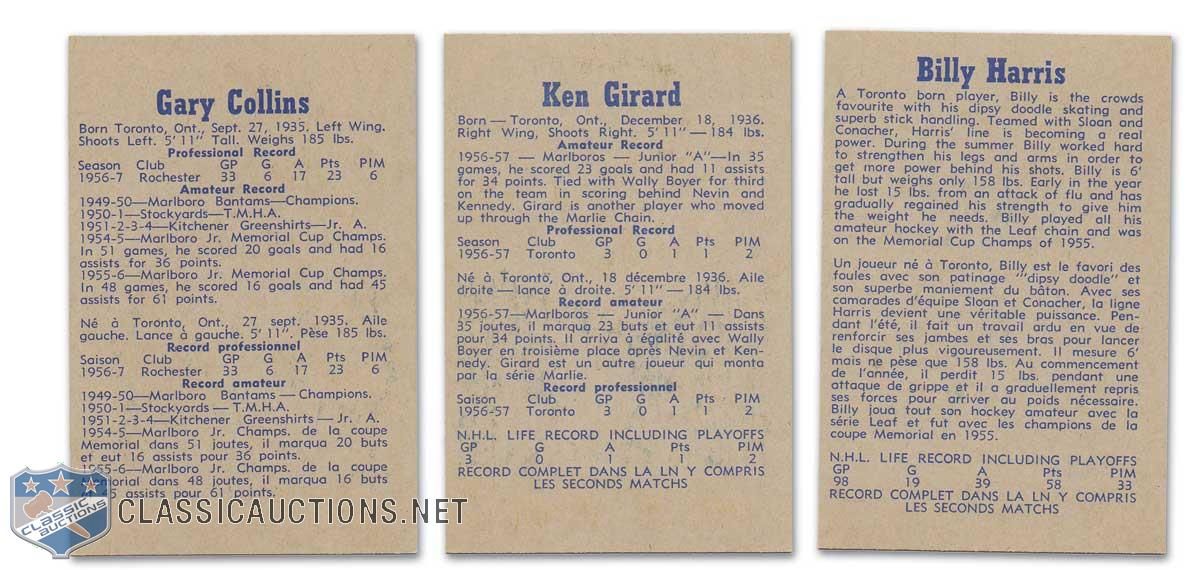 Gary Collins
Born Toronto, Ont., Sept. 27, 1935. Left Wing.
Shoots Left. 5' 11" Tall. Weighs 185 lbs.
Professional Record
Season Club GP G A Pts PIM
1956-7 Rochester 33 6 17 23 6
Amateur Record
1949-50—Marlboro Bantams—Champions.
1950-1—Stockyards—T.M.H.A.
1951-2-3-4—Kitchener Greenshirts—Jr. A.
1954-5—Marlboro Jr. Memorial Cup Champs.
In 51 games, he scored 20 goals and had 16
assists for 36 points.
1955-6—Marlboro Jr. Memorial Cup Champs.
In 48 games, he scored 16 goals and had 45
assists for 61 points.
Né à Toronto, Ont., 27 sept. 1935. Aile
gauche. Lance à gauche. 5' 11". Pèse 185 lbs.
Record professionnel
Saison Club GP G A Pts PIM
1956-7 Rochester 33 6 17 23 6
Record amateur
1949-50—Marlboro Bantams—Champions.
1950-1—Stockyards—T.M.H.A.
1951-2-3-4—Kitchener Greenshirts—Jr. A.
1954-5—Marlboro Jr. Champs. de la coupe
Memorial dans 51 joutes, il marqua 20 buts
et eut 16 assists pour 36 points.
1955-6—Marlboro Jr. Champs. de la coupe
Memorial dans 48 joutes, il marqua 16 buts
45 assists pour 61 points.
Ken Girard
Born — Toronto, Ont., December 18, 1936.
Right Wing, Shoots Right. 5' 11" — 184 lbs.
Amateur Record
1956-57 — Marlboros — Junior "A"—In 35
games, he scored 23 goals and had 11 assists
for 34 points. Tied with Wally Boyer for third
on the team in scoring behind Nevin and
Kennedy. Girard is another player who moved
up through the Marlie Chain.
Professional Record
Season Club GP G A Pts PIM
1956-57 Toronto 3 0 1 1 2
Né à Toronto, Ont., 18 décembre 1936. Aile
droite — lance à droite. 5' 11" — 184 lbs.
Record amateur
1956-57—Marlboros — Junior "A" — Dans
35 joutes, il marqua 23 buts et eut 11 assists
pour 34 points. Il arriva à égalité avec Wally
Boyer en troisième place après Nevin et Ken-
nedy. Girard est un autre joueur qui monta
par la série Marlie.
Record professionnel
Saison Club GP G A Pts PIM
1956-57 Toronto 3 0 1 1 2
N.H.L. LIFE RECORD INCLUDING PLAYOFFS
GP G A Pts PIM
3 0 1 1 2
RECORD COMPLET DANS LA LN Y COMPRIS
LES SECONDS MATCHS
Billy Harris
A Toronto born player, Billy is the crowds
favourite with his dipsy doodle skating and
superb stick handling. Teamed with Sloan and
Conacher, Harris' line is becoming a real
power. During the summer Billy worked hard
to strengthen his legs and arms in order to
get more power behind his shots. Billy is 6'
tall but weighs only 158 lbs. Early in the year
he lost 15 lbs. from an attack of flu and has
gradually regained his strength to give him
the weight he needs. Billy played all his
amateur hockey with the Leaf chain and was
on the Memorial Cup Champs of 1955.
Un joueur né à Toronto, Billy est le favori des
foules avec son patinage '"dipsy doodle" et
son superbe maniement du bâton. Avec ses
camarades d'équipe Sloan et Conacher, la ligne
Harris devient une véritable puissance. Pen-
dant l'été, il fait un travail ardu en vue de
renforcir ses jambes et ses bras pour lancer
le disque plus vigoureusement. Il mesure 6'
mais ne pèse que 158 lbs. Au commencement
de l'année, il perdit 15 lbs. pendant une
attaque de grippe et il a graduellement repris
ses forces pour arriver au poids nécessaire.
Billy joua tout son hockey amateur avec la
série Leaf et fut avec les champions de la
coupe Memorial en 1955.
N.H.L. LIFE RECORD INCLUDING PLAYOFFS
GP G A Pts PIM
98 19 39 58 33
RECORD COMPLET DANS LA LN Y COMPRIS
LES SECONDS MATCHS
CLASSIC
AUCTIONS
CLASSICAUCTIONS.NET